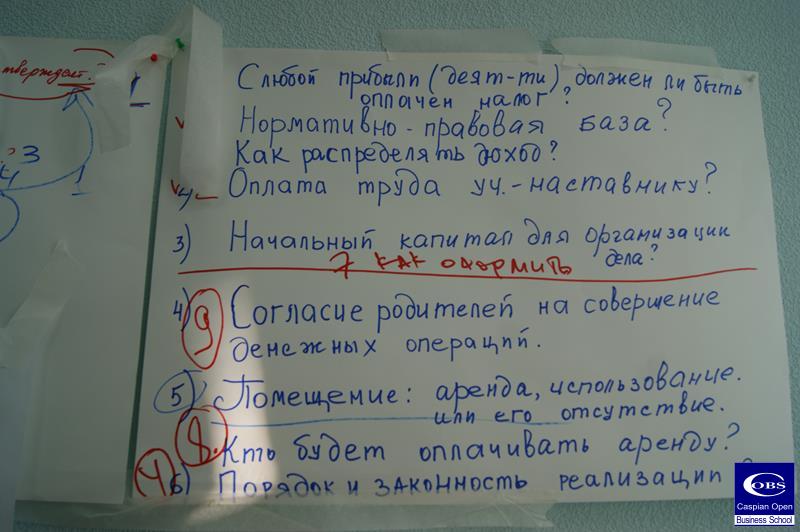 тверждает.?
3
1
С любой прибыли (деят-ти), должен ли быть
оплачен налог?
Нормативно-правовая база?
Как распределять доход?
Оплата труда уч.-наставнику?
3) Начальный капитал для организации
дела?
7 как оформить
4) 9 Согласие родителей на совершение
денежных операций.
5) Помещение: аренда, использование.
или его отсутствие.
8. Кто будет оплачивать аренду?
6) Порядок и законность реализации?
COBS
Caspian Open
Business School